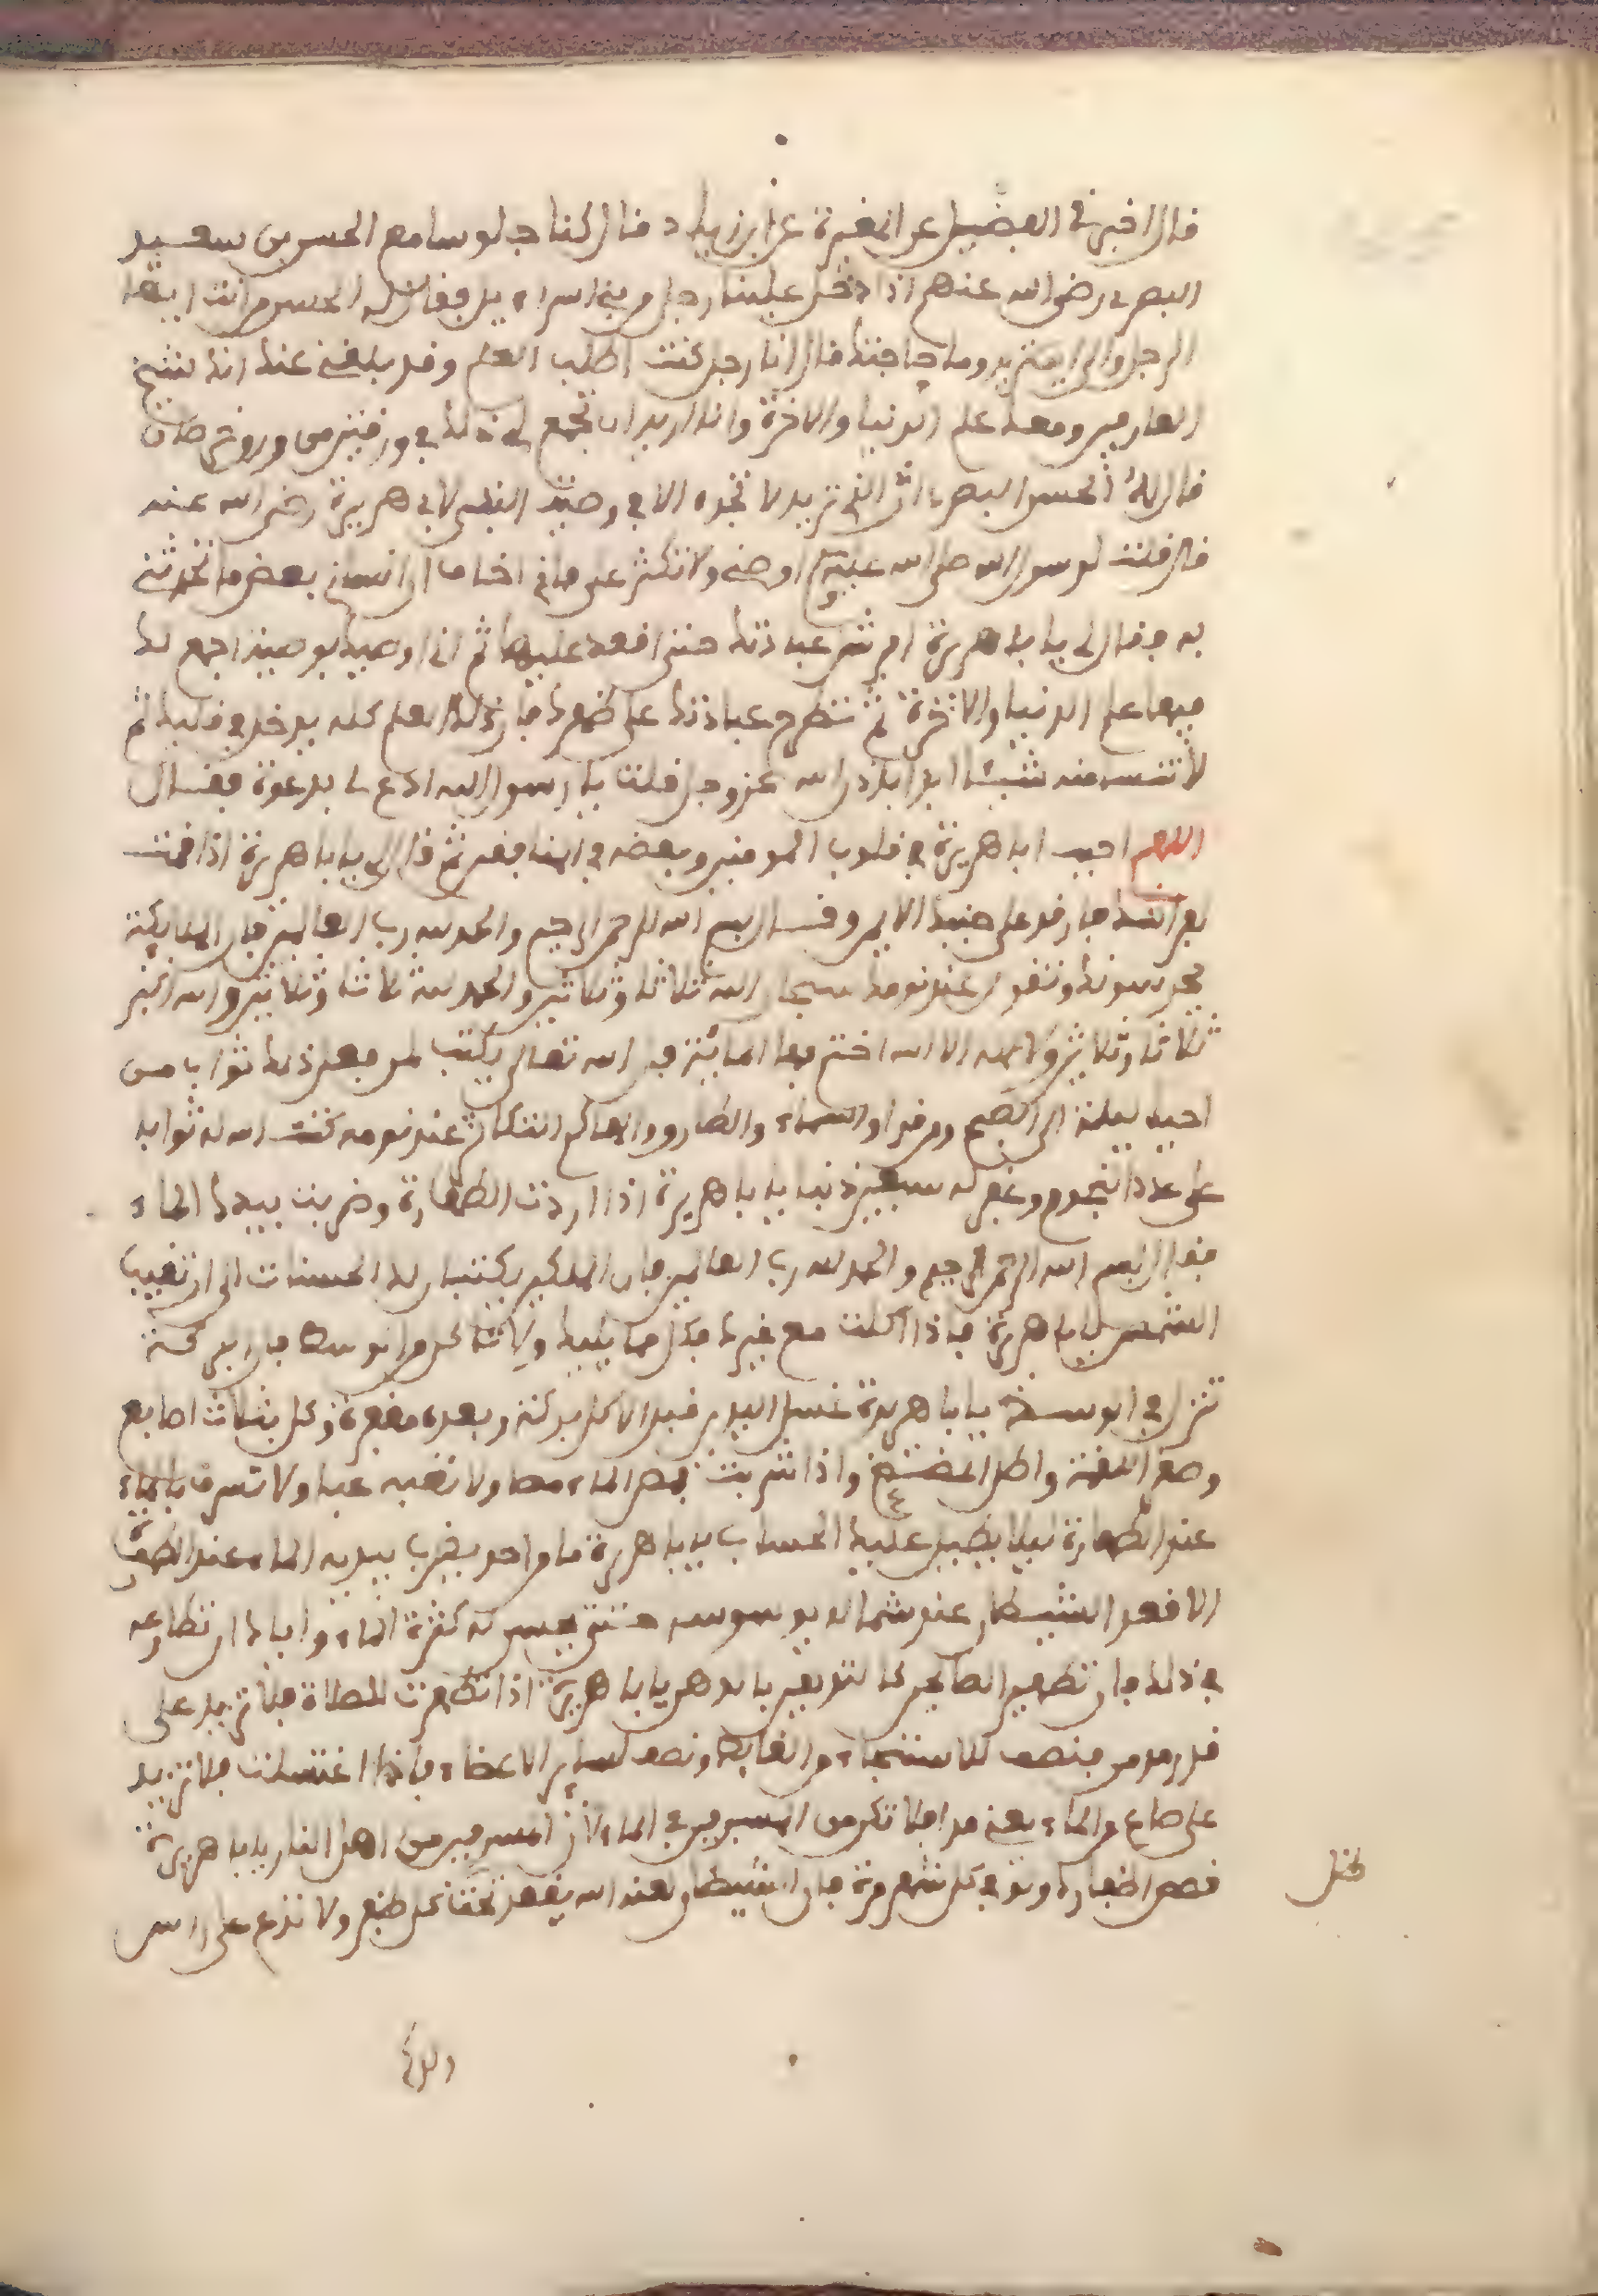 قال اخبرني الفضيل عن المغيرة عن ابن زياد قال كنا جلوسا مع الحسن بن سعيد
البصري رضي الله عنهم اذا دخل علينا رجل من بني اسراءيل فقال له الحسن من انت ايها
الرجل والى اين تريد وما حاجتك قال انا رجل كنت اطلب العلم وقد بلغني عنك انك شيخ
العارفين ومعك علم الدنيا والاخرة وانا اريد ان تجمع لي ذلك في ورقتين من وروق
قال له الحسن البصري ان الذي تريد لا تجده الا في وصية النبي لابي هريرة رضي الله عنه
قال قلت لرسول الله صلى الله عليه وسلم اوصني ولا تكثر علي فاني اخاف ان انسى بعض ما تحدثني
به فقال لي يا با هريرة افرش عباءتك حتى اقعد عليها ثم اني اوصيك بوصية اجمع لك
فيها علم الدنيا والاخرة ثم تطرح عباءتك على ظهرك فان ذلك العلم كله يدخل في قلبك ثم
لا تنسى منه شيئا ابدا باذن الله عز وجل قلت يا رسول الله ادع لي بدعوة فقال
اللهم احبب ابا هريرة في قلوب المومنين وبغضه في المنافقين ثم قال لي يا با هريرة اذا قمت
بفراشك فارقد على جنبك الايمن وقل بسم الله الرحمن الرحيم والحمد لله رب العالمين فان الملايكة
يحرسونك وتقول عند نومك سبحان الله ثلاثا وثلاثين والحمد لله ثلاثا وثلاثين والله اكبر
ثلاثا وثلاثين ولا اله الا الله اختم بها المائة فان الله تعالى يكتب لمن فعل ذلك ثواب من
احيى ليلته الى الصبح ومن قرا والسماء والطارق والهاكم التكاثر عند نومه كتب الله له ثوابه
على عدد النجوم وغفر له سبعين ذنبا يا با هريرة اذا اردت الطهارة وضربت بيدك الماء
فقل بسم الله الرحمن الرحيم والحمد لله رب العالمين فان الملكين يكتبان لك الحسنات الى ان تغيب
الشمس يا با هريرة فاذا اكلت مع غيرك فكل مما يليك ولا تاكل من الوسط فان البركة
تنزل في الوسط يا با هريرة غسل اليدين قبل الاكل بركة وبعده مغفرة وكل بثلاث اصابع
وصغر اللقمة واطل المضغ واذا شربت فمص الماء مصا ولا تعبه عبا ولا تسرف بالماء
عند الطهارة ليلا يطيل عليك الحساب يا با هريرة ما من احد يضرب بيديه الماء عند الطهر
الا قعد الشيطان عند شماله يوسوسه حتى تيسر له كثرة الماء واياك ان تطاوعه
في ذلك فان تطهير الصالحين كالتدهين بالدهن يا با هريرة اذا تطهرت للصلاة فلا تزيد على
قدر مد من نصف للاستنجاء من الغايط ونصف لساير الاعضاء فاذا اغتسلت فلا تزيد
على صاع من الماء يعني مد فلا تكن من المسرفين في الماء لان المسرفين من اهل النار يا با هريرة
قص اظفارك ولو في كل شهر مرة فان الشيطان لعنه الله يقعد تحت كل ظفر ولا تنزع على راس